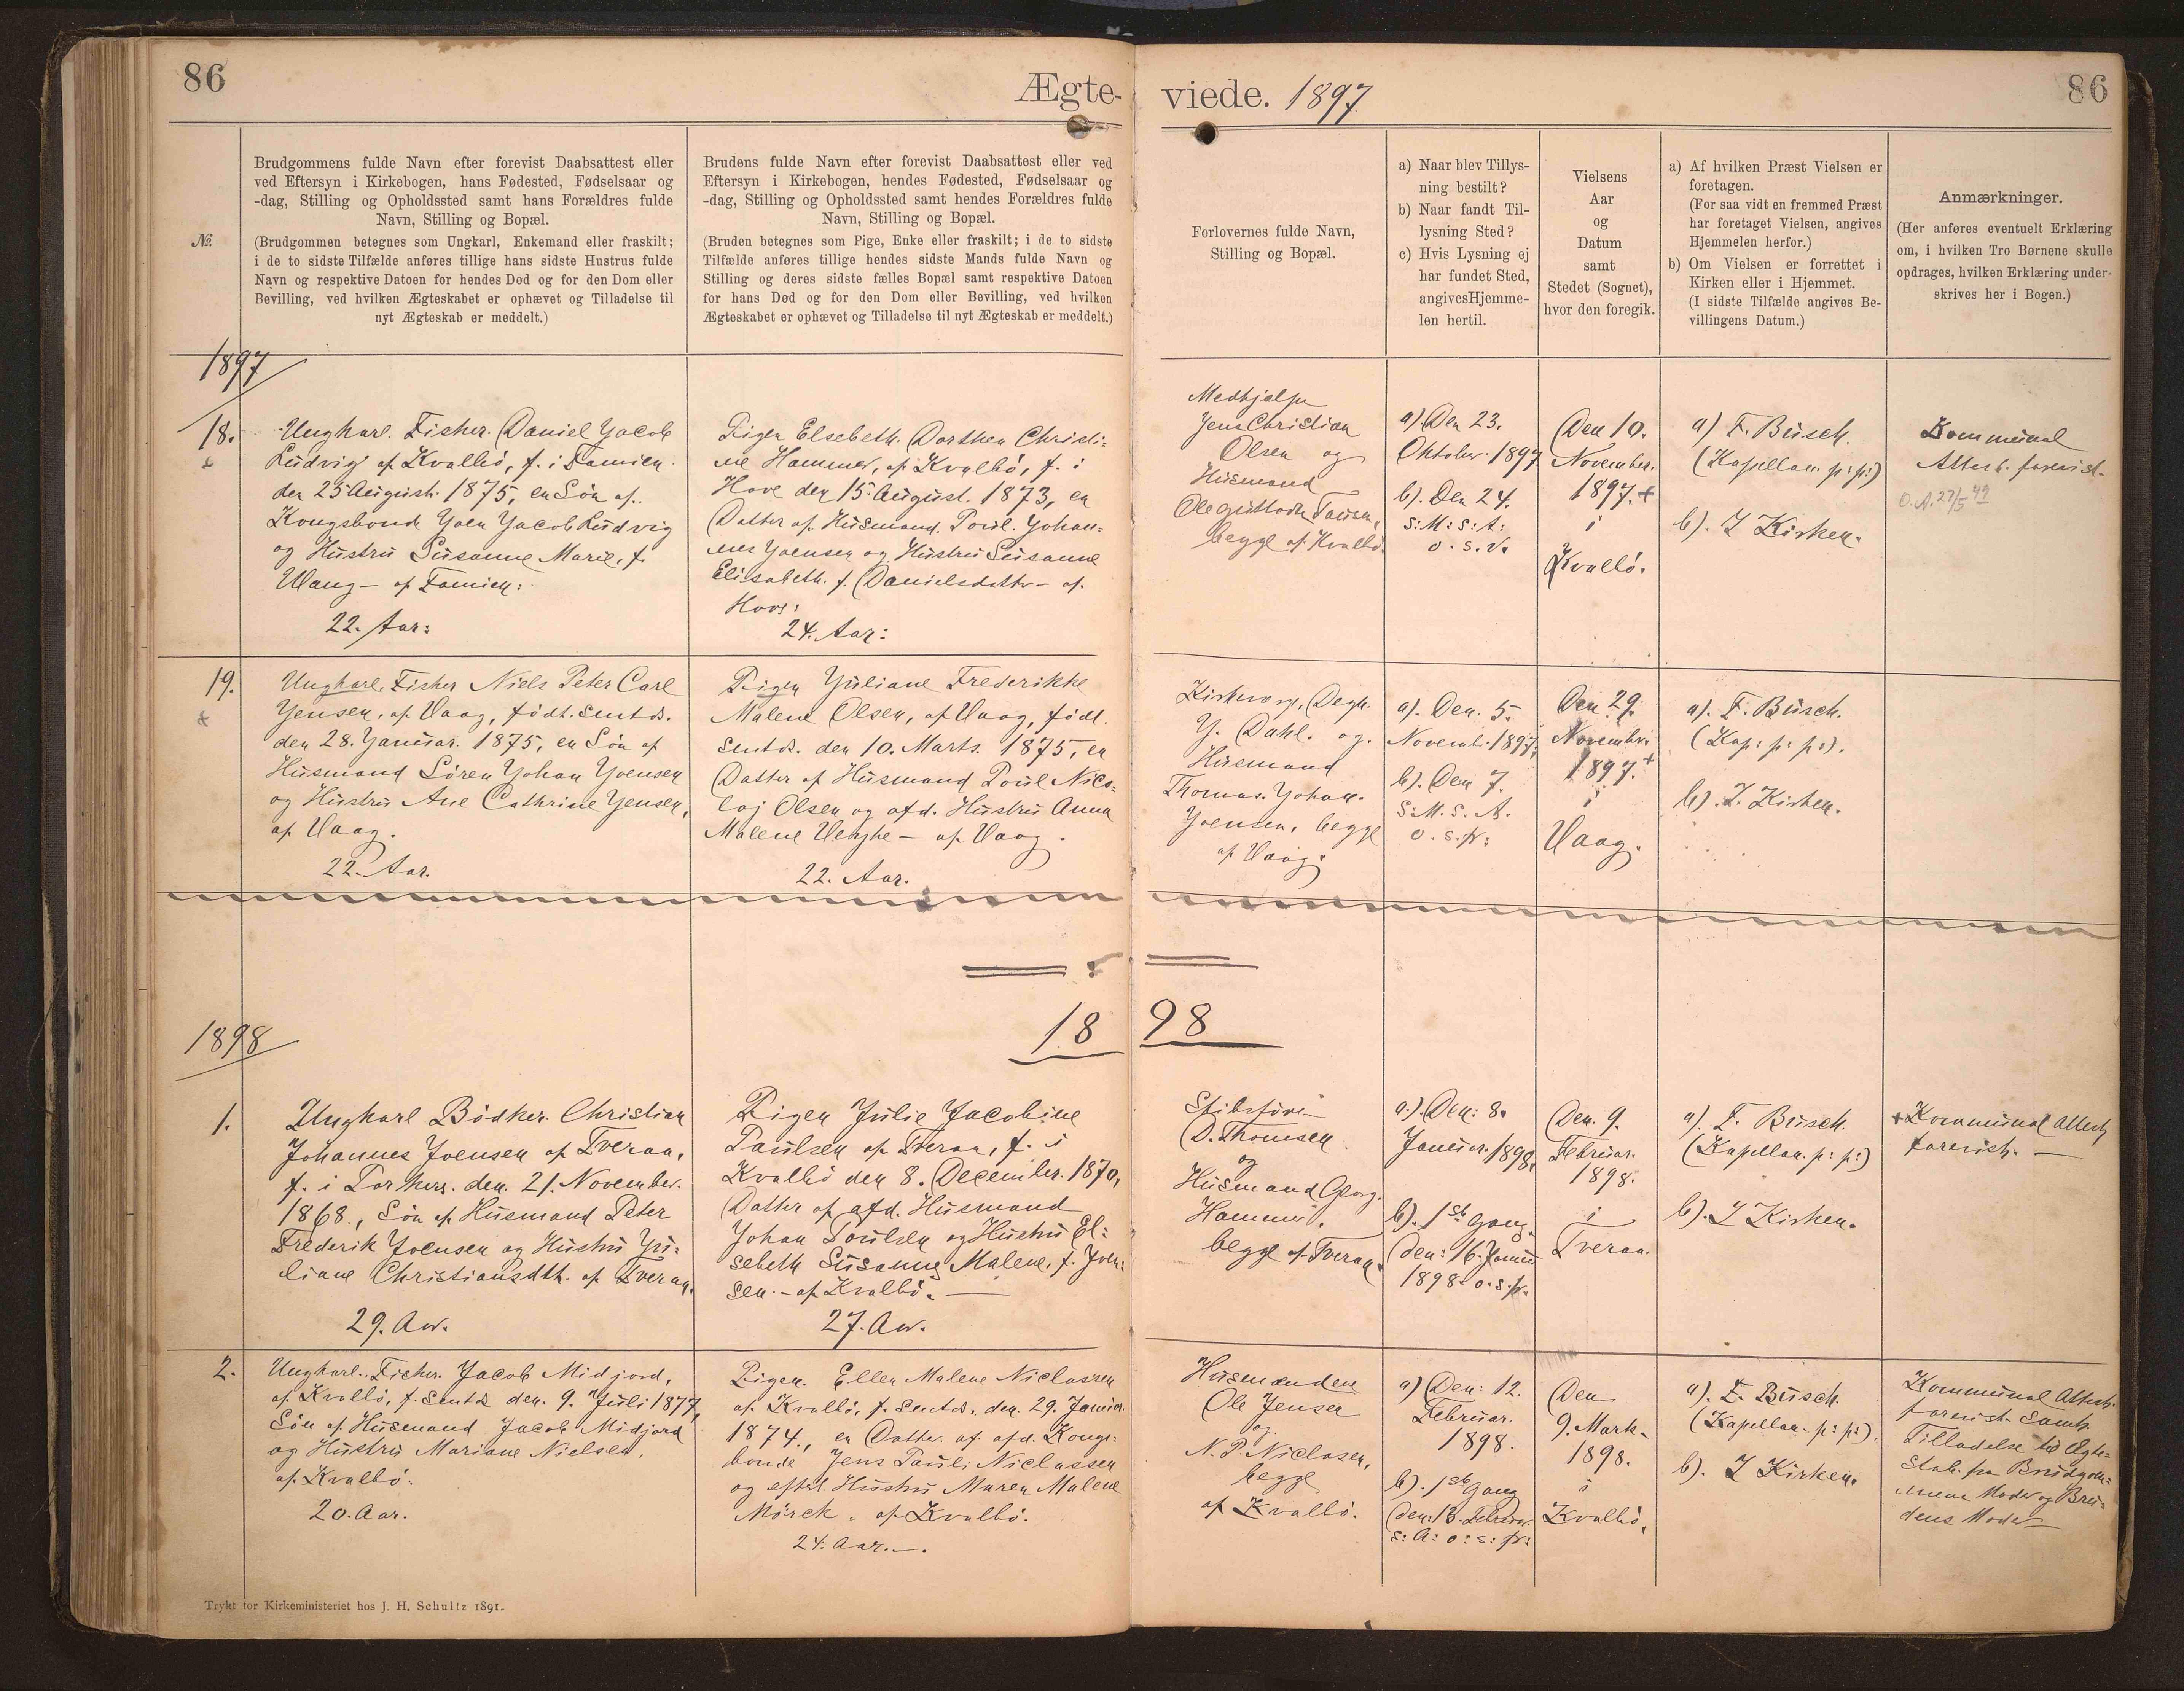 86
Ægte-
viede. 1897
86
№.
Brudgommens fulde Navn efter forevist Daabsattest eller
ved Eftersyn i Kirkebogen, hans Fødested, Fødselsaar og
-dag, Stilling og Opholdssted samt hans Forældres fulde
Navn, Stilling og Bopæl.
(Brudgommen betegnes som Ungkarl, Enkemand eller fraskilt;
i de to sidste Tilfælde anføres tillige hans sidste Hustrus fulde
Navn og respektive Datoen for hendes Død og for den Dom eller
Bevilling, ved hvilken Ægteskabet er ophævet og Tilladelse til
nyt Ægteskab er meddelt.)
Brudens fulde Navn efter forevist Daabsattest eller ved
Eftersyn i Kirkebogen, hendes Fødested, Fødselsaar og
-dag, Stilling og Opholdssted samt hendes Forældres fulde
Navn, Stilling og Bopæl.
(Bruden betegnes som Pige, Enke eller fraskilt; i de to sidste
Tilfælde anføres tillige hendes sidste Mands fulde Navn og
Stilling og deres sidste fælles Bopæl samt respektive Datoen
for hans Død og for den Dom eller Bevilling, ved hvilken
Ægteskabet er ophævet og Tilladelse til nyt Ægteskab er meddelt.)
Forlovernes fulde Navn,
Stilling og Bopæl.
a) Naar blev Tillys-
ning bestilt?
b) Naar fandt Til-
lysning Sted?
c) Hvis Lysning ej
har fundet Sted,
angivesHjemme-
len hertil.
Vielsens
Aar
og
Datum
samt
Stedet (Sognet),
hvor den foregik.
a) Af hvilken Præst Vielsen er
foretagen.
(For saa vidt en fremmed Præst
har foretaget Vielsen, angives
Hjemmelen herfor.)
b) Om Vielsen er forrettet i
Kirken eller i Hjemmet.
(I sidste Tilfælde angives Be-
villingens Datum.)
Anmærkninger.
(Her anføres eventuelt Erklæring
om, i hvilken Tro Børnene skulle
opdrages, hvilken Erklæring under-
skrives her i Bogen.)
1897
18.
Ungkarl. Fisker. Daniel Jacob
Ludvig af Kvalbö, f. i Famien
den 25 August. 1875, en Sön af.
Kongsbonde Joen Jacob Ludvig
og Hustru Susanne Marie, f.
Vang - af Famien:
22. Aar:
Pigen Elsebeth. Dorthea Christi=
ne Hammer, af Kvalbö, f. i
Hove den 15. August. 1873, en
Datter af Husmand. Poul. Johan=
nes Joensen og Hustru Susanne
Elisabeth. f. Danielsdatter - af.
Hove:
24. Aar:
Medhjælper
Jens Christian
Olsen og
Husmand
Ole
begge af Kvalbö.
a) Den 23.
Oktober 1897
b). Den 24.
S: M: S: A:
o. s. v.
Den 10.
November.
1897. +
i
Kvalbö.
a) F. Busch.
(Kapellan. p: p:)
b). I Kirken.
Kommunal
Attest. forevist.
O. A. 27/5 49
19.
Ungkarl, Fisker Niels Peter Carl
Jensen, af Vaag, födt. Sentds.
den 28. Januar. 1875, en Sön af
Husmand Sören Johan Joensen
og Hustru Ane Cathrine Jensen,
af Vaag.
22. Aar.
Pigen Juliane Frederikke
Malene Olsen, af Vaag, födt.
Sentds. den 10. Marts. 1875, en
Datter af Husmand Poul Nico=
laj Olsen og afd. Hustru Anna
Malene - af Vaag.
22. Aar.
Kirkeverge, Degn.
J. Dahl. og.
Husmand
Thomas. Johan.
Joensen, begge
af Vaag.
a). Den. 5.
Novemb. 1897.
b). Den 7.
S: M. S. A.
o. s. fr:
Den 29.
Novembr.
1897. +
i
Vaag.
a). F. Busch.
(Kap: p: p:).
b). I. Kirken.
1898
18 98
1.
Ungkarl Bödker. Christian
Johannes Joensen af Tveraa,
f. i Porkere. den. 21. November.
1868., Sön af Husmand Peter
Frederik Joensen og Hustru Ju=
liane Christiansdth. af Tveraa.
29. Aar.
Pigen Julie Jacobine
Paulsen af Tveraa, f. i
Kvalbö den 8. December. 1870,
Datter af afd. Husmand
Johan Poulsen og Hustru El=
sebeth Susanne Malene, f. Joen=
sen. - af Kvalbö. —
27. Aar.
Skibsförer
D. Thomsen
og
Husmand Georg.
Hammer.
begge af Tveraa.
a.). Den: 8.
Januar. 1898.
b). 1ste Gang
den: 16. Januar
1898. o. s. fr.
Den. 9.
Februar.
1898.
i
Tveraa.
a). F. Busch.
(Kapellan. p: p:)
b). I Kirken.
+ Kommunal Attest
forevist. —
2.
Ungkarl. Fisker. Jacob Midjord,
af Kvalbö, f. Sentds den. 9. Juli 1877,
Sön af Husmand Jacob Midjord
og Hustru Mariane Nielsen,
af Kvalbö.
20. Aar.
Pigen. Ellen Malene Niclassen
af Kvalbö, f. Sentds. den. 29. Januar.
1874., en Datter af afd. Kongs=
bonde Jens Pauli Niclassen
og efterl. Hustru Maren Malene
Mörck. af Kvalbö.
24. Aar. —.
Husmænden
Ole Jensen
og
N. P. Niclasen,
begge
af Kvalbö.
a) Den: 12.
Februar.
1898.
b). 1ste Gang
den: 13. Februar
s: A: o: s: fr:
Den
9. Marts.
1898.
i
Kvalbö.
a). F. Busch.
(Kapellan. p: p:).
b). I Kirken.
Kommunal Attest.
forevist. Samt
Tilladelse til Ægte=
skab. fra Brudgom=
mens Moder og Bru=
dens Moder —
Trykt for Kirkeministeriet hos J. H. Schultz 1891.